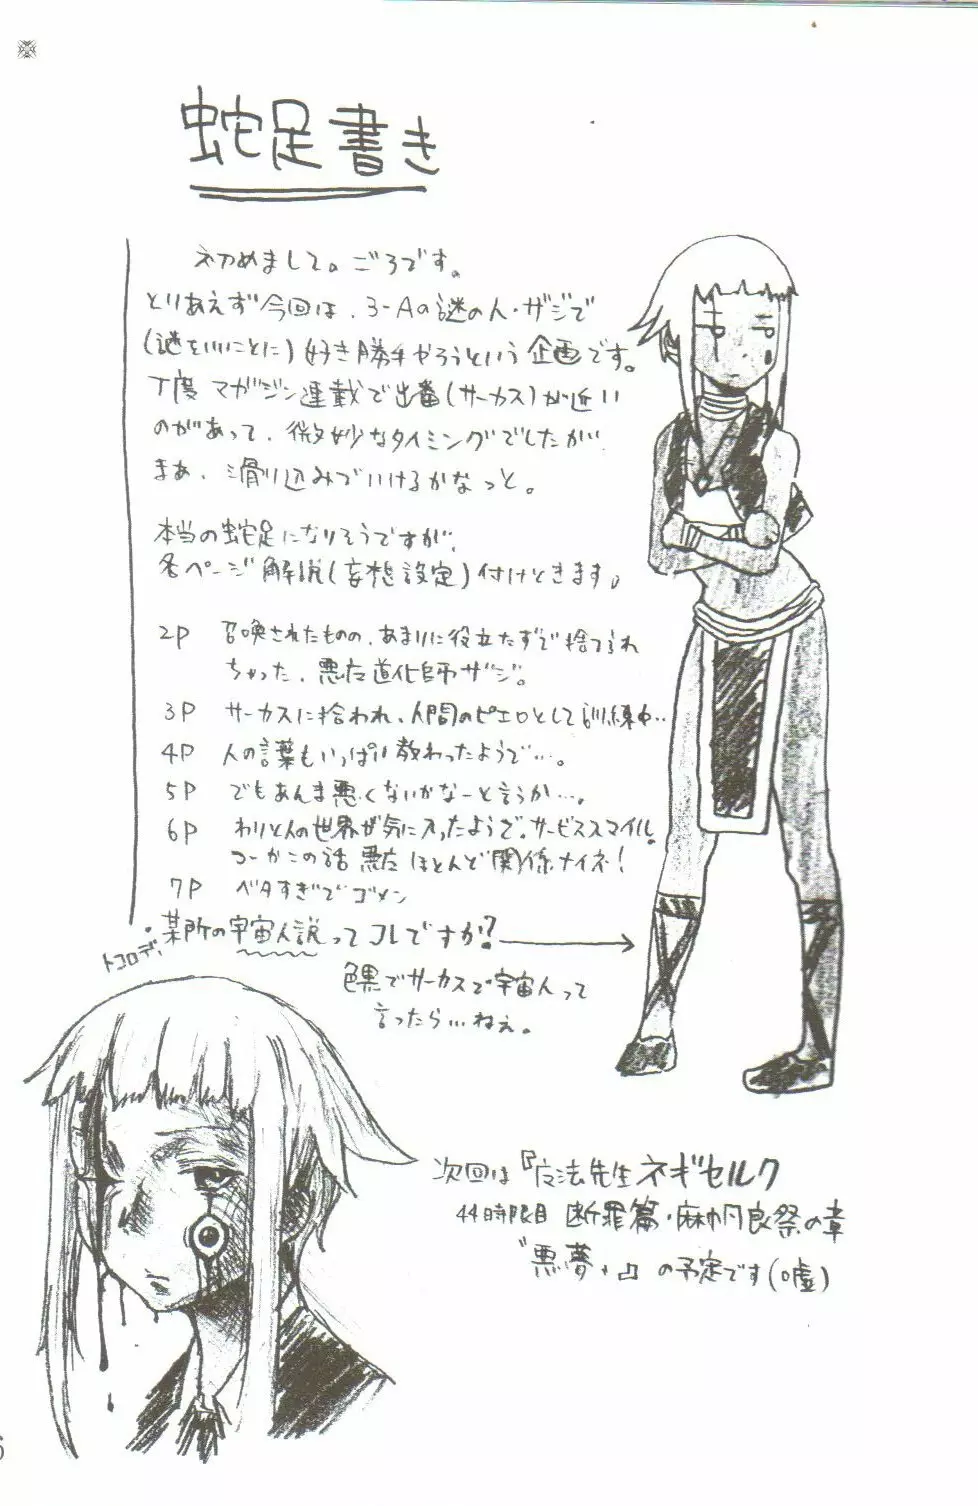 蛇足書き
初めまして。ごろです。
とりあえず今回は、3-Aの謎の人・ザジで
(謎をいいことに)好き勝手やろうという企画です。
丁度マガジン連載で出番(サーカス)が近い
のがあって、微妙なタイミングでしたが
まぁ、滑り込みでいけるかなっと。
本当の蛇足になりそうですが、
各ページ解説(妄想設定)付けときます。
2P 召喚されたものの、あまりに役立たずで捨てられ
ちゃった、悪魔道化師ザジ。
3P サーカスに拾われ、人間のピエロとして訓練中‥
4P 人の言葉もいっぱい教わったようで…。
5P でもあんま悪くないかなーと言うか…。
6P わりと人の世界が気に入ったようで、サービススマイル。
つーかこの話悪魔ほとんど関係ナイネ!
7P ベタすぎでゴメン
・某所の宇宙人説ってコレですか?
トコロデ、
色黒でサーカスで宇宙人って
言ったら…ねぇ。
次回は『魔法先生ネギセルク
44時限目 断罪篇・麻帆良祭の章
"悪夢"』の予定です(嘘)
6